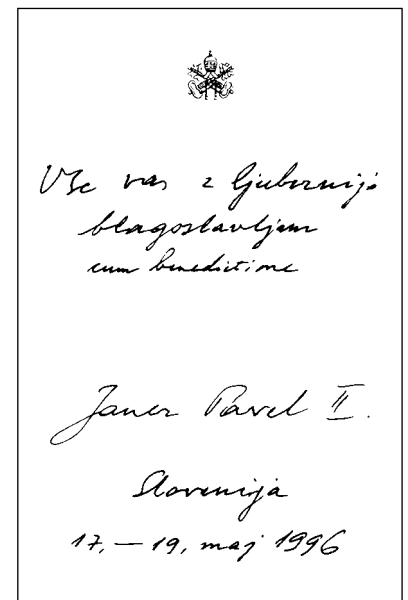 Vse vas z ljubeznijo
blagoslavljam
cum benedictione
Janez Pavel II.
Slovenija
17. – 19. maj 1996